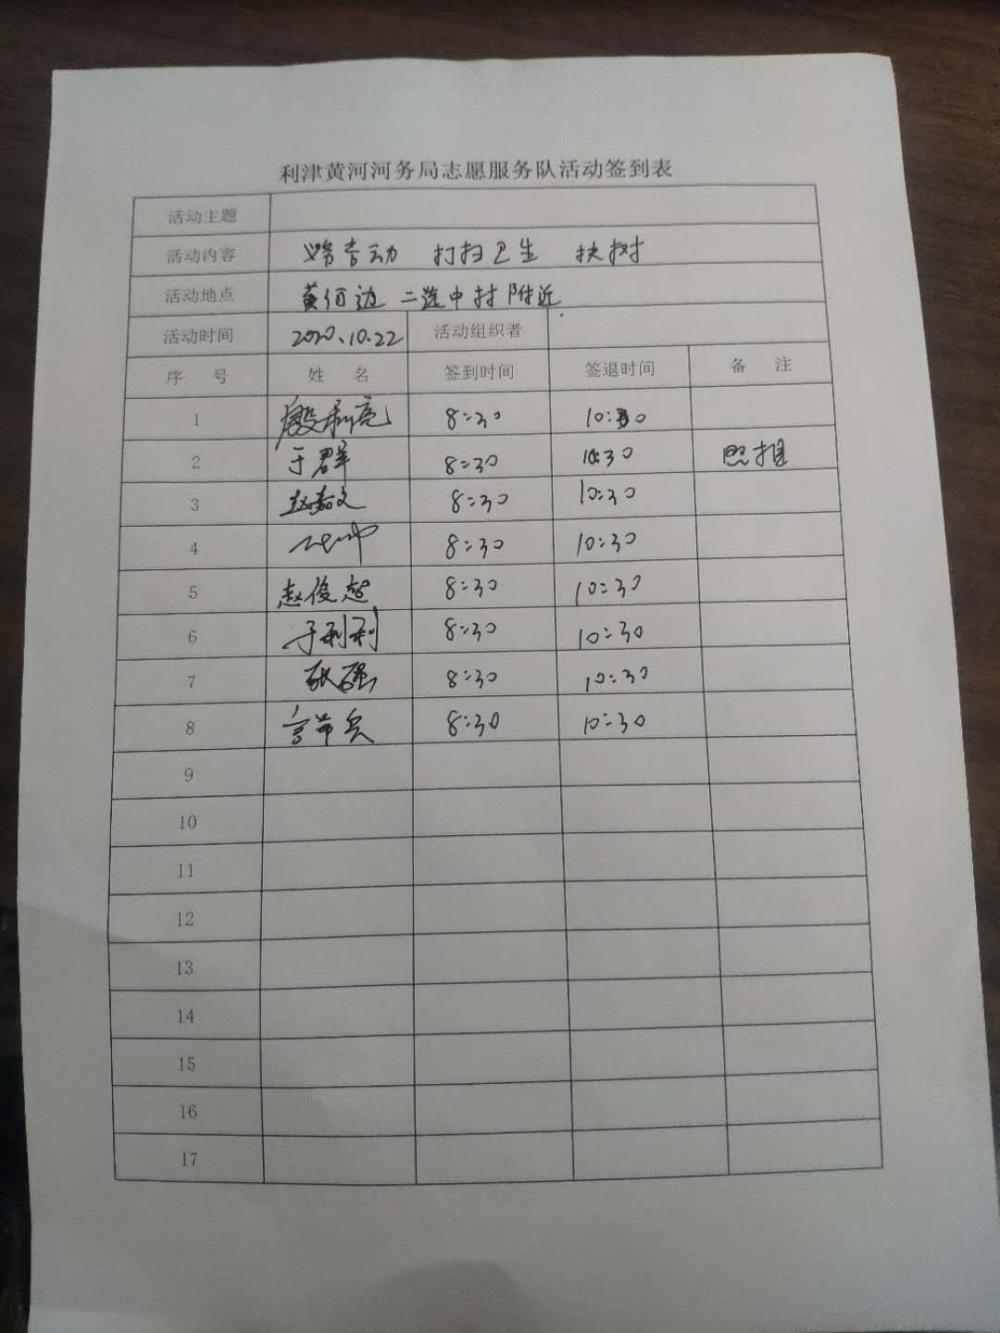 利津黄河河务局志愿服务队活动签到表
活动主题
活动内容 义务劳动 打扫卫生 扶树
活动地点 黄河边 中村附近
活动时间 2020.10.22 活动组织者
序 号 姓 名 签到时间 签退时间 备 注
1 殷利亮 8:30 10:30
2 于群 8:30 10:30 照相
3 赵嘉文 8:30 10:30
4 8:30 10:30
5 赵俊超 8:30 10:30
6 于利利 8:30 10:30
7 张强 8:30 10:30
8 8:30 10:30
9
10
11
12
13
14
15
16
17